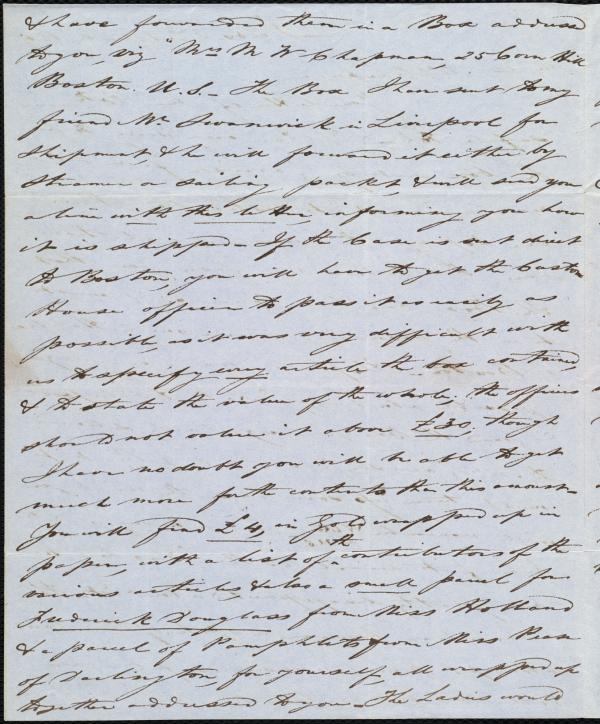 & have forwarded them in a Box addressed
to you, viz "Mrs M W Chapman, 25 Corn Hill
Boston. U.S. – The Box I have sent to my
friend Mr Swanwick in Liverpool for
shipment, & he will forward it either by
steamer or sailing packet, & will send you
a line with this letter, informing you how
it is shipped – If the Case is sent direct
to Boston, you will have to get the Custom
House officer to pass it as easily as
possible, as it was very difficult with
us to specify every article the box contained,
& to state the value of the whole, the officers
should not value it above £30, though
I have no doubt you will be able to get
much more for the contents than this amount –
You will find £4, in Gold wrapped up in
paper, with a list of the contributors of the
various articles, & also a small parcel for
Frederick Douglass from Miss Holland
& a parcel of Pamphlets from Miss Pease
of Darlington, for yourself, all wrapped up
together addressed to you – The Ladies would